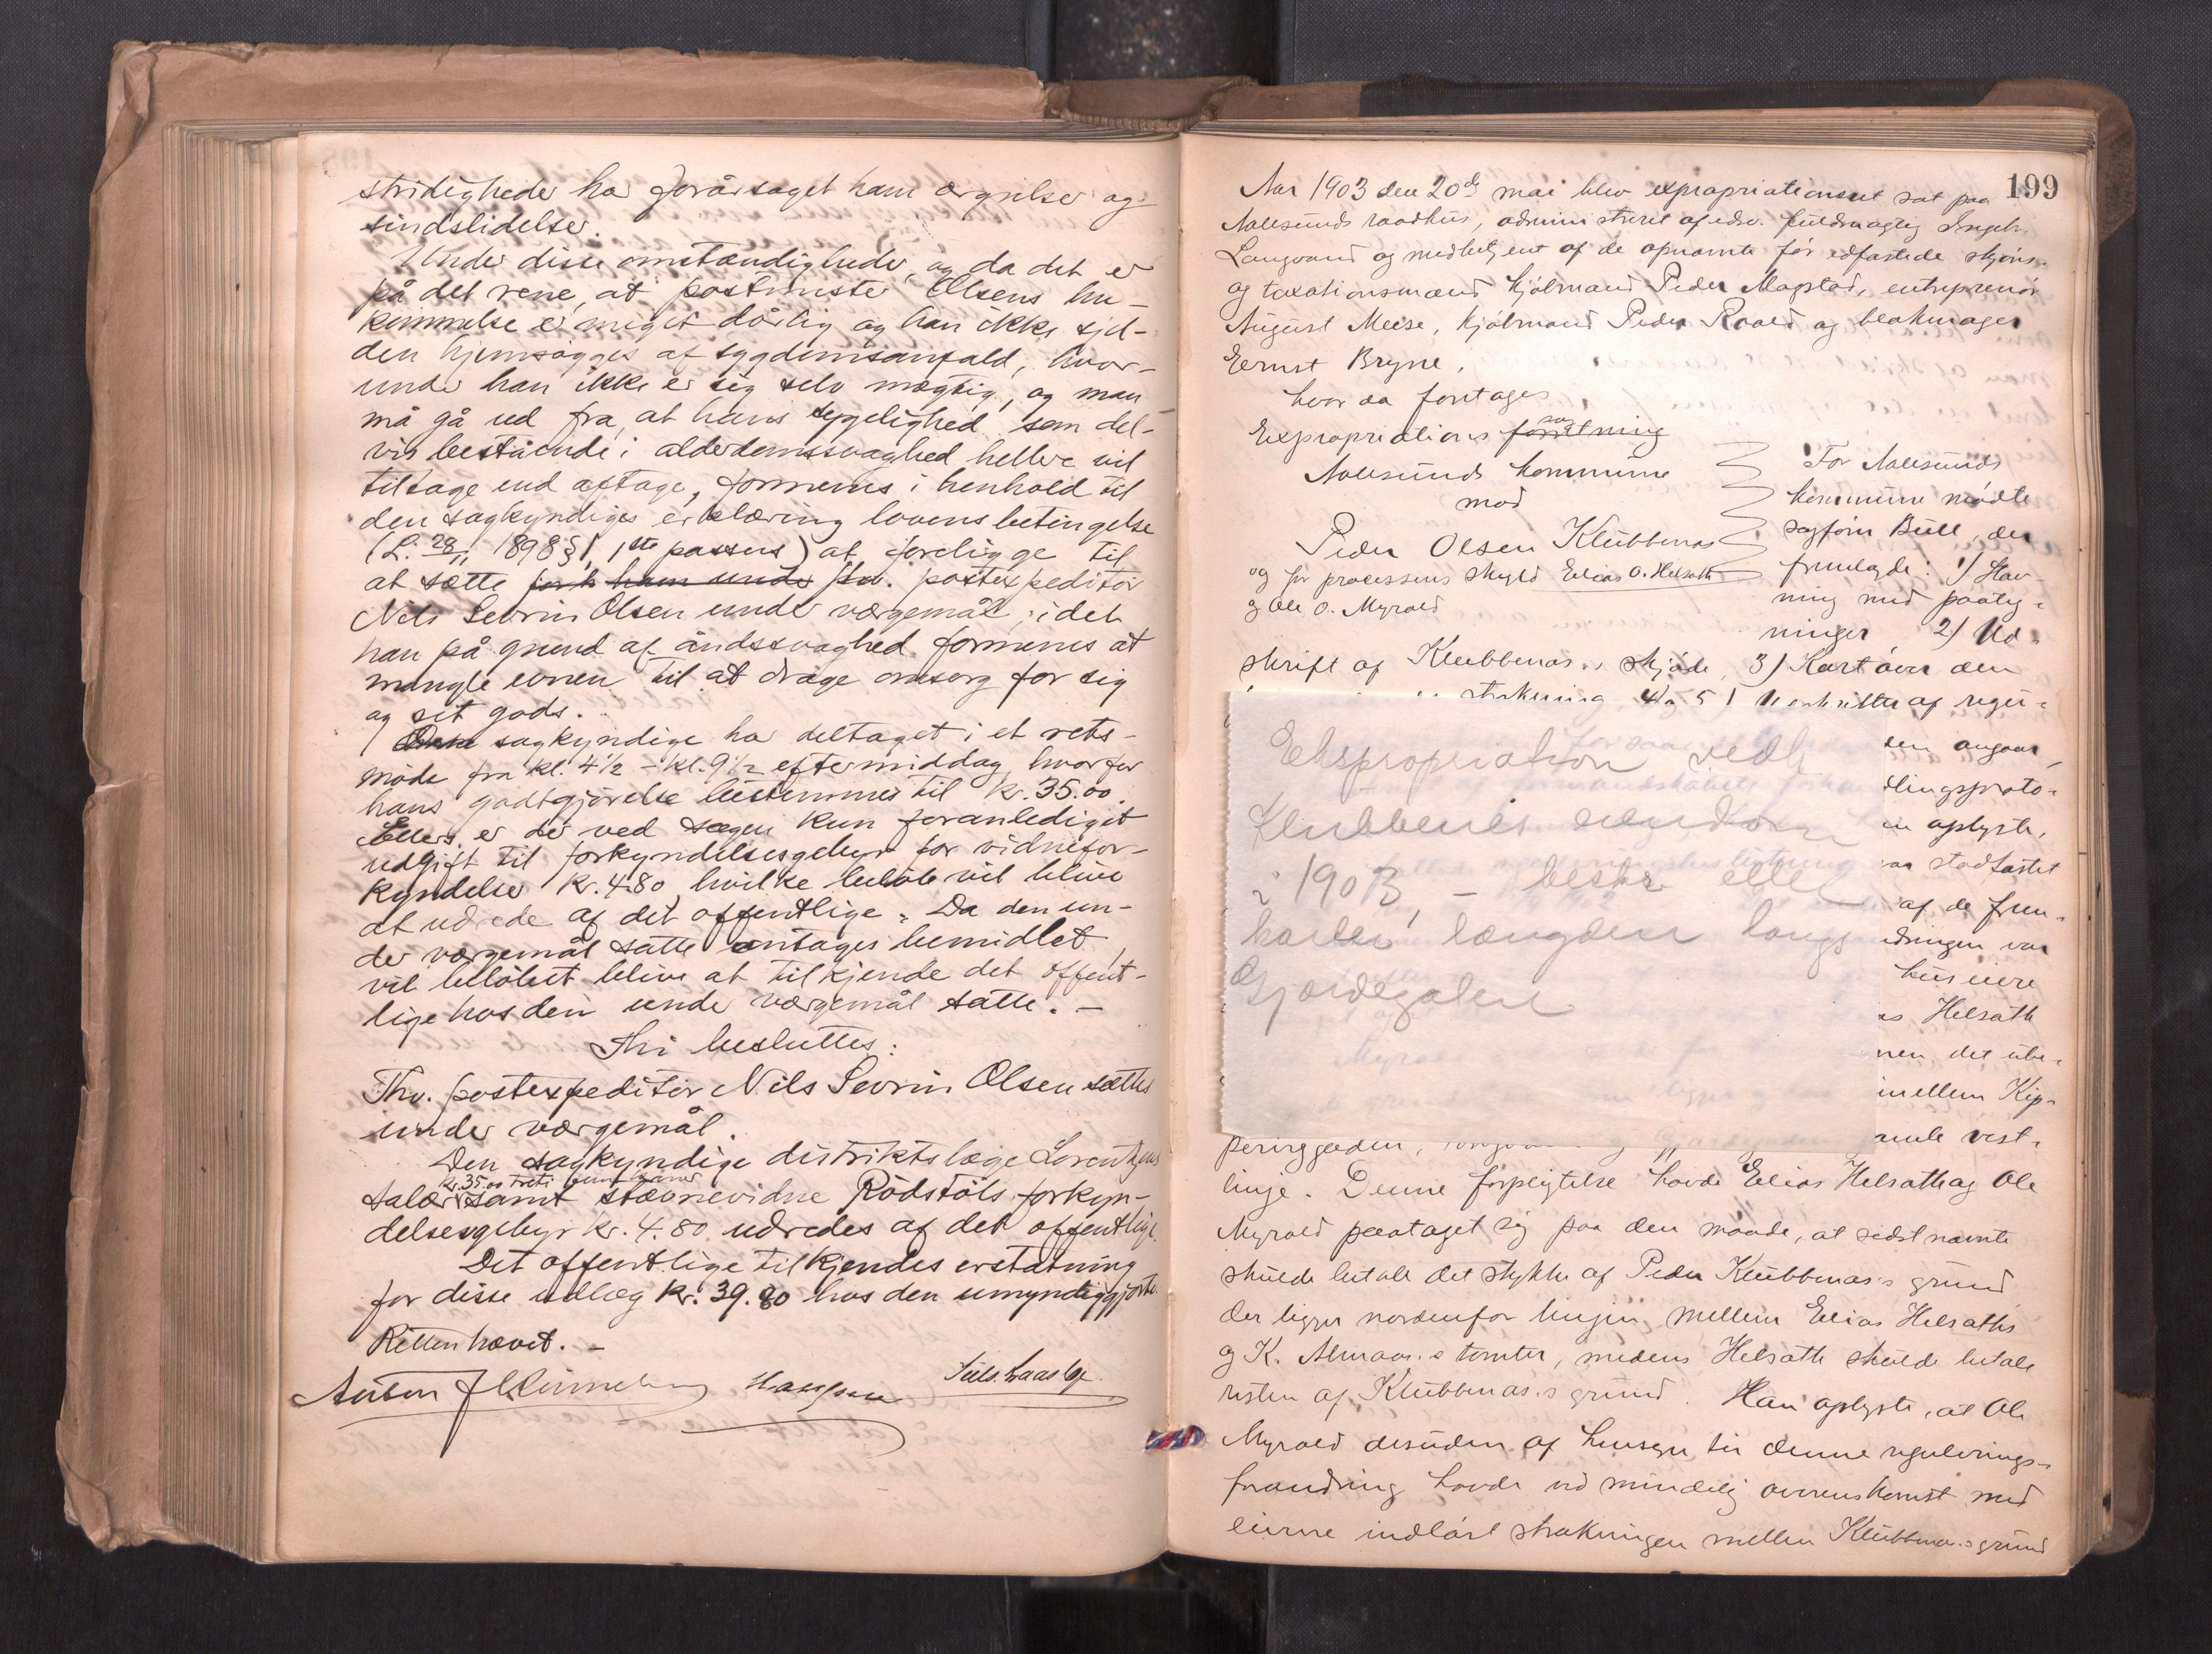 stridigheder ha forårsaget ham ærgrelse og
sindslidelse.
Under disse omstændigheder, og da det er
på det rene, at postmester Olsens hu-
kommelse er meget dårlig og han ikke sjel-
den hjemsøgges af sygdomsanfald, hvor-
under han ikke er sig selv mægtig, og man
må gå ud fra, at hans sygelighed som del-
vis bestående i alderdomssvaghed hellere vil
tiltage end aftage, formenes i henhold til
den sagkyndiges erklæring lovens betingelse
(L. 28/11 1898 § 1, 1ste passus) at foreligge til
at sætte ham under fhv. postexpeditør
Nils Sevrin Olsen under værgemål, idet
han på grund af åndssvaghed formenes at
mangle evnen til at drage omsorg for sig
og sit gods.
Den sagkyndige har deltaget i et rets-
møde fra kl. 4½ - kl. 9½ eftermiddag, hvorfor
hans godtgjørelse bestemmes til kr. 35.00.
Ellers er der ved sagen kun foranlediget
udgift til forkyndelsesgebyr for vidnefor-
kyndelse kr. 4.80, hvilke beløb vil blive
at udrede af det offentlige. Da den un-
der værgemål satte antages bemidlet,
vil beløbet blive at tilkjende det offent-
lige hos den under værgemål satte. -
Thi besluttes:
Fhv. postexpeditør Nils Sevrin Olsen sættes
under værgemål.
Den sagkyndige distriktslæge Lorentzens
kr. 35.00 treti fem kroner
salær samt stævnevidne Rödstöls forkyn-
delsesgebyr kr. 4.80 udredes af det offentlige.
Det offentlige tilkjendes erstatning
for disse udlæg kr. 39.80 hos den umyndiggjorte.
Retten hævet. -
Anton
199
Aar 1903 den 20de mai blev expropriationsret sat paa
Aalesunds raadhus, administreret af edsv. fuldmægtig Ingebr.
Langvand og medbetjent af de opnævnte før edfæstede skjøns-
og taxationsmænd kjøbmand Peder Magstad, entreprenør
August Meese, kjøbmand Peder Roald og blokmager
Ernst Bryne,
hvor da foretages
sag
Expropriations forretning
Aalesunds kommune
mod
Peder Olsen Klubbenæs
og for processens skyld Elias O. Helsæth
og Ole O. Myrold
For Aalesunds
kommune mødte
sagfører Bull, der
fremlagde: 1) Stæv-
ning med paateg-
ninger 2) Ud-
skrift af Klubbenæs's skjøde, 3) Kart over den
strækning 4) og 5) Udskrifter af regu-
den angaar,
dlingsproto-
en oplyste,
var stadfæstet
af de frem-
edringen var
huseiere
as Helsæth
nen det ube-
mellem Kip-
peringgaden, amle vest-
Ekspropriation vedk
Klubbenes eiendom
i 1903, - beskr eller
harlei længden langs
Gjærdegaten
linje. Denne forpligtelse havde Elias Helsæth og Ole
Myrold paataget sig paa den maade, at sidstnævnte
skulde betale det stykke af Peder Klubbenæs's grund,
der ligger nordenfor linjen mellem Elias Helsæths
og K. Almaas's tomter, medens Helsæth skulde betale
resten af Klubbenæs's grund. Han oplyste, at Ole
Myrold desuden af hensyn til denne regulerings-
forandring havde ved mindelig overenskomst med
eierne indløst strækningen mellem Klubbenæs's grund